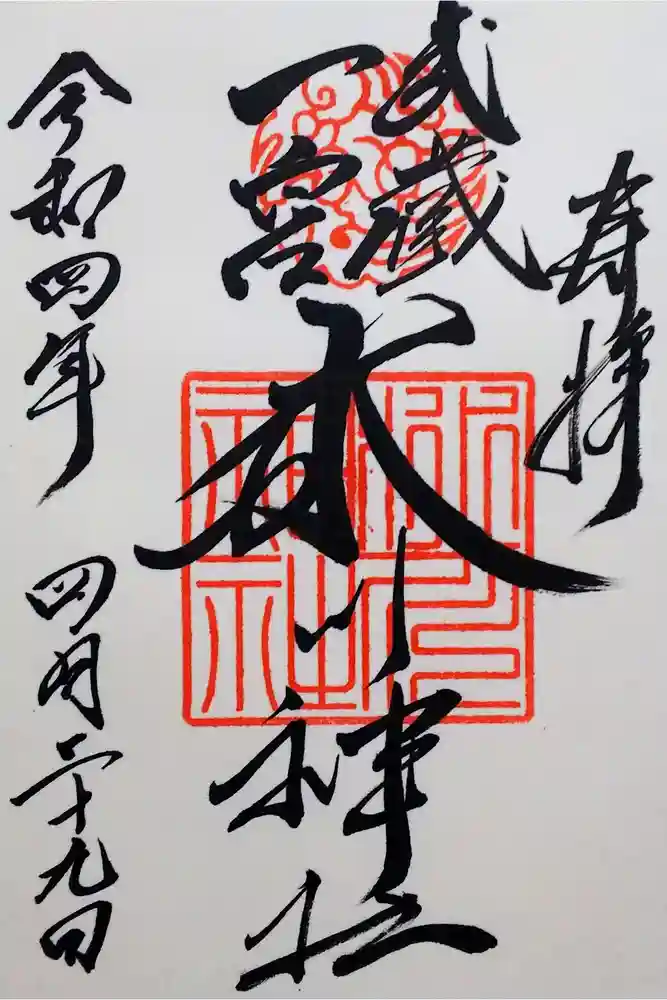 奉拝
武蔵
一宮
氷川神社
令和四年 四月二十九日
氷川
神社